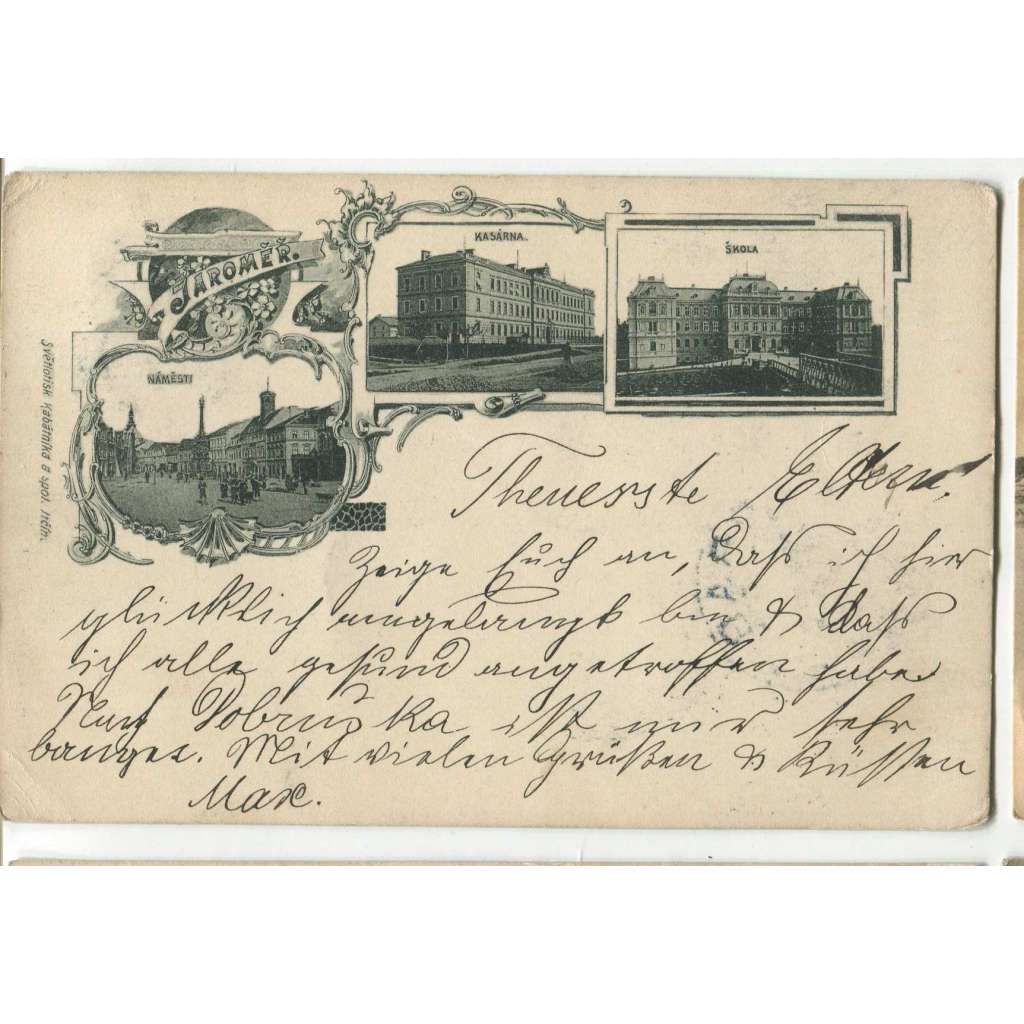 JAROMĚŘ.
KASÁRNA.
ŠKOLA
NÁMĚSTÍ
Světlotisk Kabátníka a spol. Jičín.
Theuerste Eltern!
Zeige Euch an, daß ich hier
glücklich angelangt bin & daß
ich alle gesund angetroffen habe.
Nach Dobruška ist mir sehr
bange. Mit vielen Grüßen & Küssen
Max.